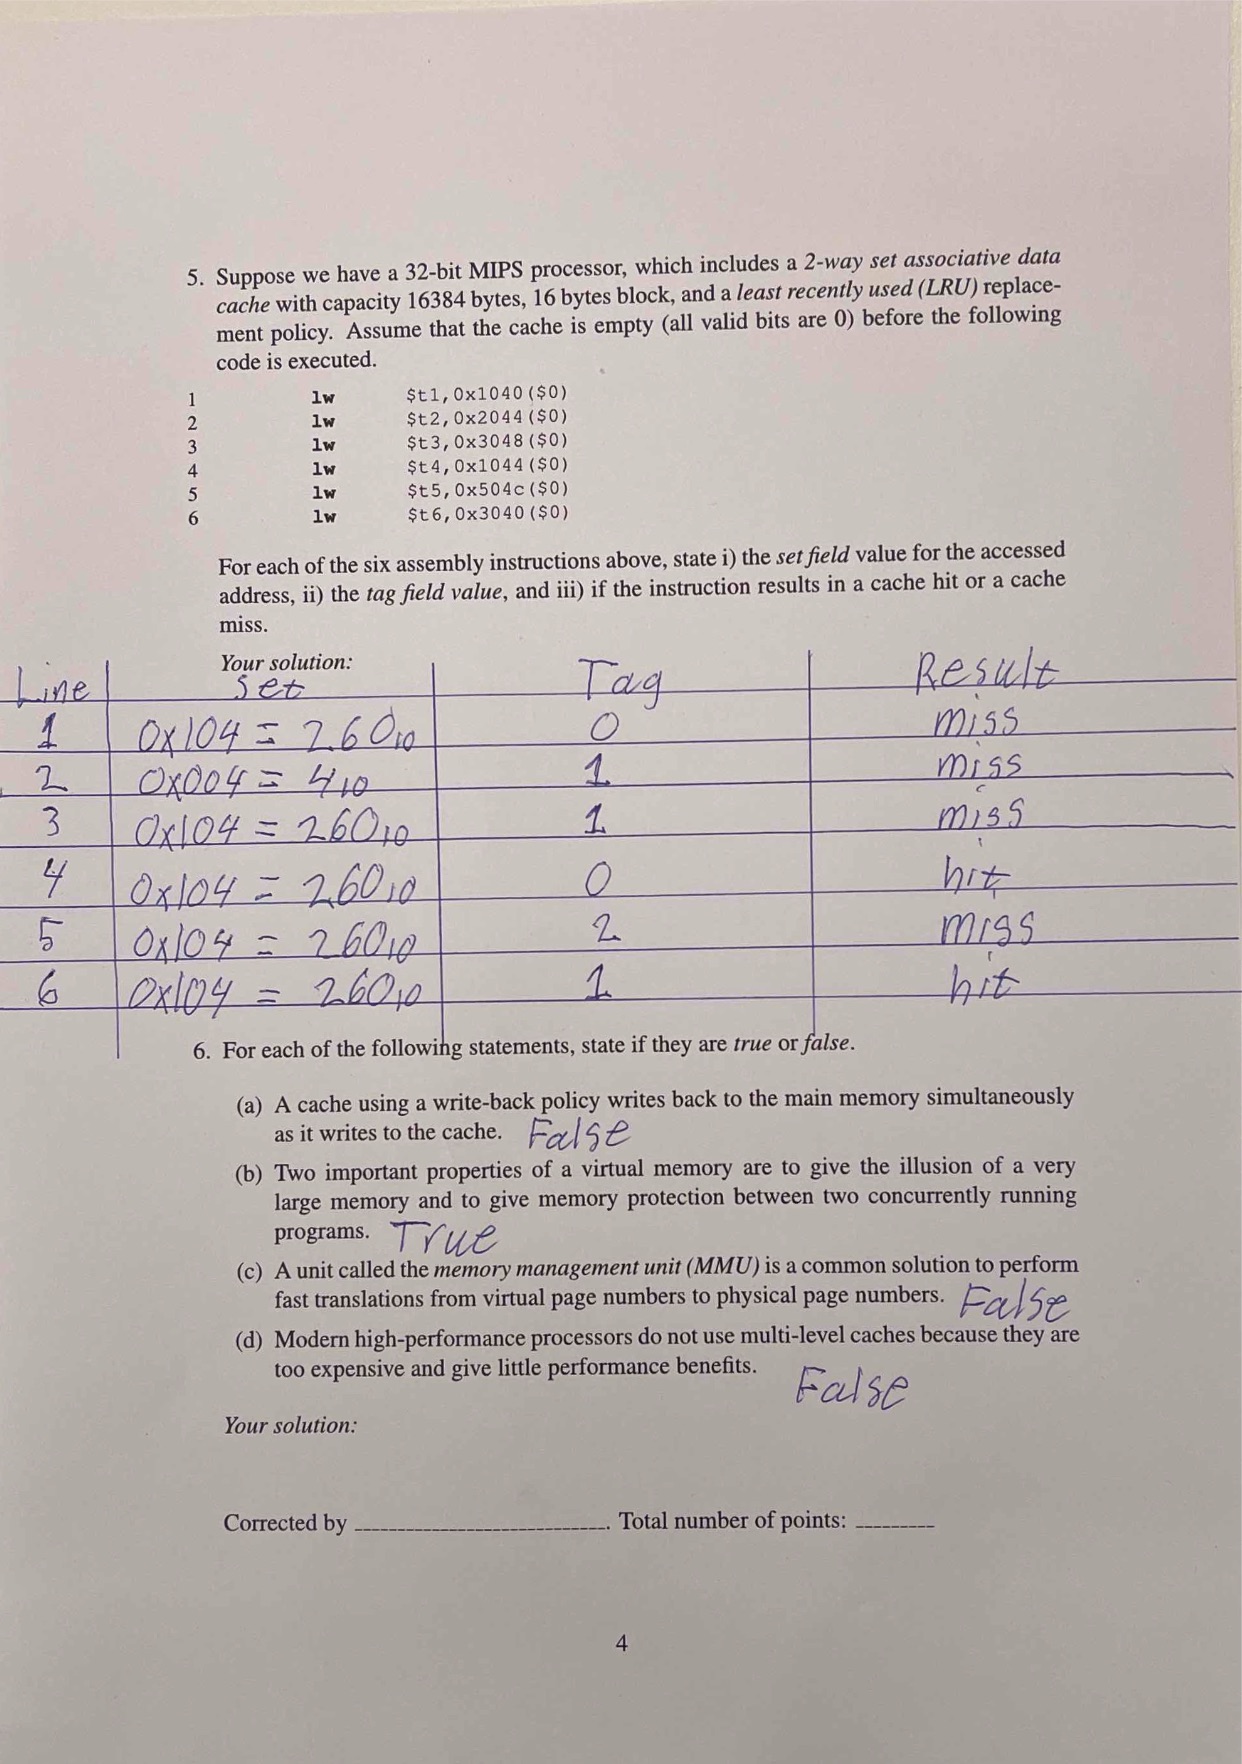 5. Suppose we have a 32-bit MIPS processor, which includes a 2-way set associative data
cache with capacity 16384 bytes, 16 bytes block, and a least recently used (LRU) replace-
ment policy. Assume that the cache is empty (all valid bits are 0) before the following
code is executed.
1 lw $t1,0x1040($0)
2 lw $t2,0x2044($0)
3 lw $t3,0x3048($0)
4 lw $t4,0x1044($0)
5 lw $t5,0x504c($0)
6 lw $t6,0x3040($0)
For each of the six assembly instructions above, state i) the set field value for the accessed
address, ii) the tag field value, and iii) if the instruction results in a cache hit or a cache
miss.
Your solution:
Line Set Tag Result
1 0x104 = 260₁₀ 0 miss
2 0x004 = 4₁₀ 1 miss
3 0x104 = 260₁₀ 1 miss
4 0x104 = 260₁₀ 0 hit
5 0x104 = 260₁₀ 2 miss
6 0x104 = 260₁₀ 1 hit
6. For each of the following statements, state if they are true or false.
(a) A cache using a write-back policy writes back to the main memory simultaneously
as it writes to the cache. False
(b) Two important properties of a virtual memory are to give the illusion of a very
large memory and to give memory protection between two concurrently running
programs. True
(c) A unit called the memory management unit (MMU) is a common solution to perform
fast translations from virtual page numbers to physical page numbers. False
(d) Modern high-performance processors do not use multi-level caches because they are
too expensive and give little performance benefits. False
Your solution:
Corrected by . Total number of points:
4